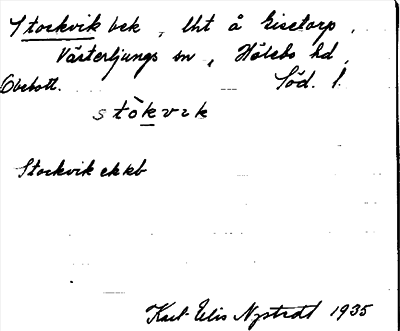 Stockvik bek, lht å Gisetorp,
Västerljungs sn, Hölebo hd,
Obebott. Söd. l.
stòkvɩk
Stockvik ekbl
Karl-Elis Nystedt 1935